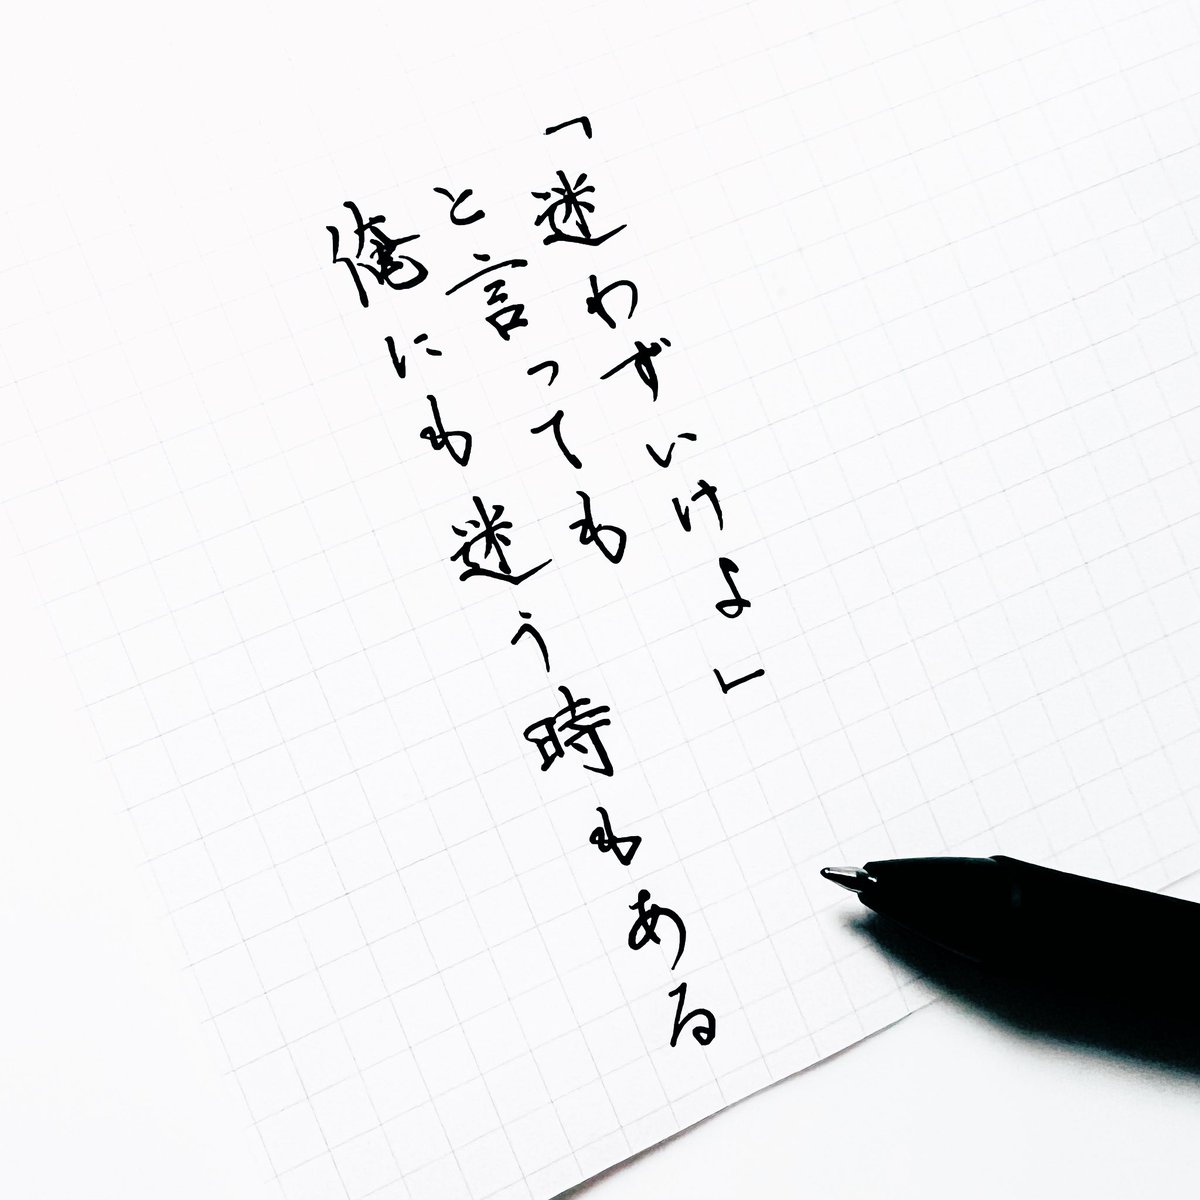 「迷わずいけよ」
と言っても
俺にも迷う時もある